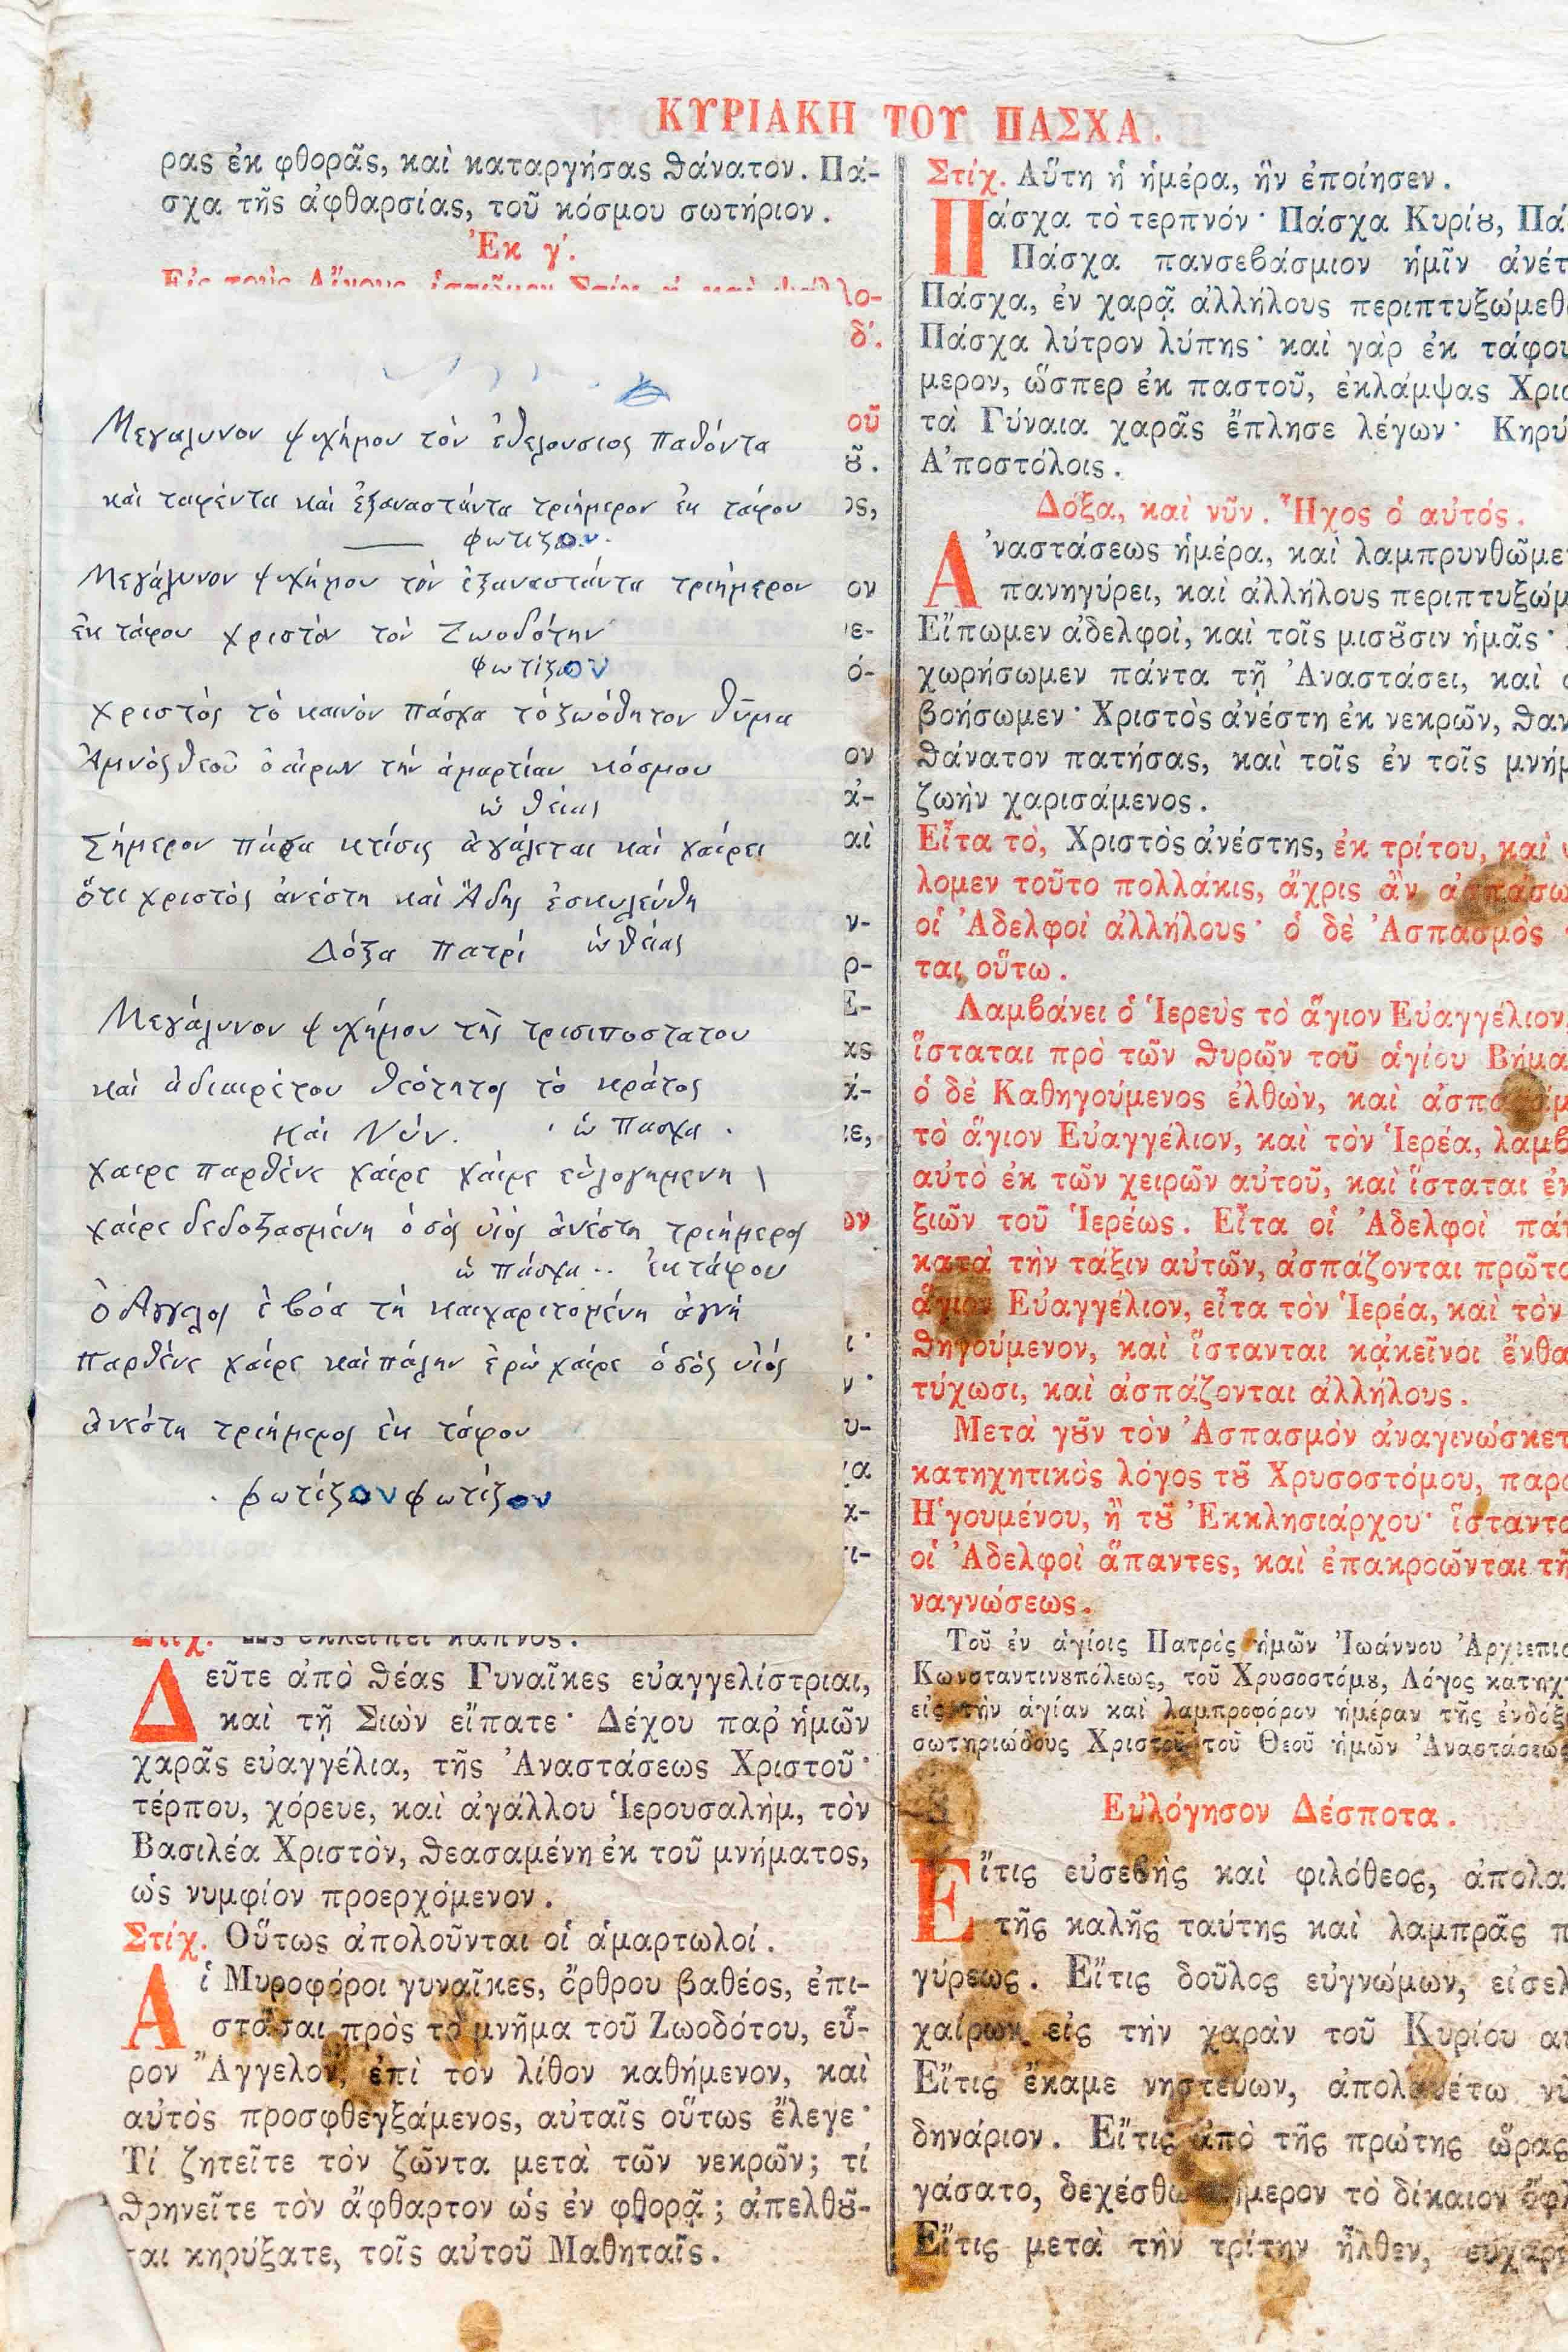 ΚΥΡΙΑΚΗ ΤΟΥ ΠΑΣΧΑ.
ρας ἐκ φθορᾶς, καὶ καταργήσας θάνατον. Πά-
σχα τῆς ἀφθαρσίας, τοῦ κόσμου σωτήριον.
Ἐκ γ´.
Μεγαλυνον ψυχήμου τὸν ἐθελουσιος παθόντα
καὶ ταφέντα καὶ ἐξαναστάντα τριήμερον ἐκ τάφου
φωτιζον.
Μεγάλυνον ψυχήμου τὸν ἐξαναστάντα τριήμερον
ἐκ τάφου χριστὸν τὸν Ζωοδότην
φωτίζον
χριστὸς τὸ καινὸν πάσχα τὸ ζωόθητον θῦμα
Ἀμνὸς θεοῦ ὁ αἰρων τὴν ἁμαρτίαν κόσμου
ὠ θείας
Σήμερον πάσα κτίσις ἀγάλεται καὶ χαίρει
ὅτι χριστὸς ἀνέστη καὶ Ἅδης ἐσκυλεύθη
Δόξα Πατρί ὠ θείας
Μεγάλυνον ψυχήμου τῆς τρισιποστατου
καὶ ἀδιαιρέτου θεότητος τὸ κράτος
καὶ Νύν. ὠ Πασχα.
χαιρε παρθένε χαίρε χαίρε εὐλογημενη
χαίρε δεδοξασμένη ὁ σὸς υἱὸς ἀνέστη τριήμερος
ὠ πάσχα .. ἐκ τάφου
ὁ Αγγελος ἐβόα τὴ καιχαριτομένη ἁγνὴ
παρθένε χαίρε καὶ πάλην ἐρὼ χαίρε ὁ σὸς υἱός
ἀνέστη τριήμερος ἐκ τάφου
φωτίζον φωτίζον
Στίχ. Ὡς ἐκλείπει καπνός.
Δεῦτε ἀπὸ θέας Γυναῖκες εὐαγγελίστριαι,
καὶ τῇ Σιὼν εἴπατε· Δέχου παρ' ἡμῶν
χαρᾶς εὐαγγέλια, τῆς Ἀναστάσεως Χριστοῦ·
τέρπου, χόρευε, καὶ ἀγάλλου Ἱερουσαλὴμ, τὸν
Βασιλέα Χριστὸν, θεασαμένη ἐκ τοῦ μνήματος,
ὡς νυμφίον προερχόμενον.
Στίχ. Οὕτως ἀπολοῦνται οἱ ἁμαρτωλοί.
Αἱ Μυροφόροι γυναῖκες, ὄρθρου βαθέος, ἐπι-
στᾶσαι πρὸς τὸ μνῆμα τοῦ Ζωοδότου, εὗ-
ρον Ἄγγελον, ἐπὶ τὸν λίθον καθήμενον, καὶ
αὐτὸς προσφθεγξάμενος, αὐταῖς οὕτως ἔλεγε·
Τί ζητεῖτε τὸν ζῶντα μετὰ τῶν νεκρῶν; τί
θρηνεῖτε τὸν ἄφθαρτον ὡς ἐν φθορᾷ; ἀπελθȣ̃-
σαι κηρύξατε, τοῖς αὐτοῦ Μαθηταῖς.
Στίχ. Αὕτη ἡ ἡμέρα, ἣν ἐποίησεν.
Πάσχα τὸ τερπνόν· Πάσχα Κυρίȣ, Πά
Πάσχα πανσεβάσμιον ἡμῖν ἀνέτ
Πάσχα, ἐν χαρᾷ ἀλλήλους περιπτυξώμεθ
Πάσχα λύτρον λύπης· καὶ γὰρ ἐκ τάφου
μερον, ὥσπερ ἐκ παστοῦ, ἐκλάμψας Χρισ
τὰ Γύναια χαρᾶς ἔπλησε λέγων· Κηρύ
Ἀποστόλοις.
Δόξα, καὶ νῦν. Ἦχος ὁ αὐτός.
Ἀναστάσεως ἡμέρα, καὶ λαμπρυνθῶμε
πανηγύρει, καὶ ἀλλήλους περιπτυξώμ
Εἴπωμεν ἀδελφοί, καὶ τοῖς μισȣ̃σιν ἡμᾶς·
χωρήσωμεν πάντα τῇ Ἀναστάσει, καὶ ο
βοήσωμεν· Χριστὸς ἀνέστη ἐκ νεκρῶν, θαν
θάνατον πατήσας, καὶ τοῖς ἐν τοῖς μνήμ
ζωὴν χαρισάμενος.
Εἶτα τὸ, Χριστὸς ἀνέστης, ἐκ τρίτου, καὶ ψ
λομεν τοῦτο πολλάκις, ἄχρις ἂν ἀσπάσω
οἱ Ἀδελφοὶ ἀλλήλους· ὁ δὲ Ἀσπασμὸς
ται οὕτω.
Λαμβάνει ὁ Ἱερεὺς τὸ ἅγιον Εὐαγγέλιον,
ἵσταται πρὸ τῶν θυρῶν τοῦ ἁγίου Βήμα
ὁ δὲ Καθηγούμενος ἐλθὼν, καὶ ἀσπασάμ
τὸ ἅγιον Εὐαγγέλιον, καὶ τὸν Ἱερέα, λαμβ
αὐτὸ ἐκ τῶν χειρῶν αὐτοῦ, καὶ ἵσταται ἐκ
ξιῶν τοῦ Ἱερέως. Εἶτα οἱ Ἀδελφοὶ πάν
κατὰ τὴν τάξιν αὐτῶν, ἀσπάζονται πρῶτο
ἅγιον Εὐαγγέλιον, εἶτα τὸν Ἱερέα, καὶ τὸν
θηγούμενον, καὶ ἵστανται κᾀκεῖνοι ἔνθα
τύχωσι, καὶ ἀσπάζονται ἀλλήλους.
Μετὰ γȣ̃ν τὸν Ἀσπασμὸν ἀναγινώσκετ
κατηχητικὸς λόγος τȣ̃ Χρυσοστόμου, παρὰ
Ἡγουμένου, ἢ τȣ̃ Ἐκκλησιάρχου· ἵσταντα
οἱ Ἀδελφοὶ ἅπαντες, καὶ ἐπακροῶνται τῆ
ναγνώσεως.
Τοῦ ἐν ἁγίοις Πατρὸς ἡμῶν Ἰωάννου Ἀρχιεπισ
Κωνσταντινȣπόλεως, τοῦ Χρυσοστόμȣ, Λόγος κατηχ
εἰς τὴν ἁγίαν καὶ λαμπροφόρον ἡμέραν τῆς ἐνδόξ
σωτηριώδους Χριστοῦ τοῦ Θεοῦ ἡμῶν Ἀναστάσεως
Εὐλόγησον Δέσποτα.
Εἴτις εὐσεβὴς καὶ φιλόθεος, ἀπολα
τῆς καλῆς ταύτης καὶ λαμπρᾶς π
γύρεως. Εἴτις δοῦλος εὐγνώμων, εἰσελ
χαίρων εἰς τὴν χαρὰν τοῦ Κυρίου αὐ
Εἴτις ἔκαμε νηστεύων, ἀπολαυέτω νῦ
δηνάριον. Εἴτις ἀπὸ τῆς πρώτης ὥρας
γάσατο, δεχέσθω σήμερον τὸ δίκαιον ὄφλ
Εἴτις μετὰ τὴν τρίτην ἦλθεν, εὐχαρι